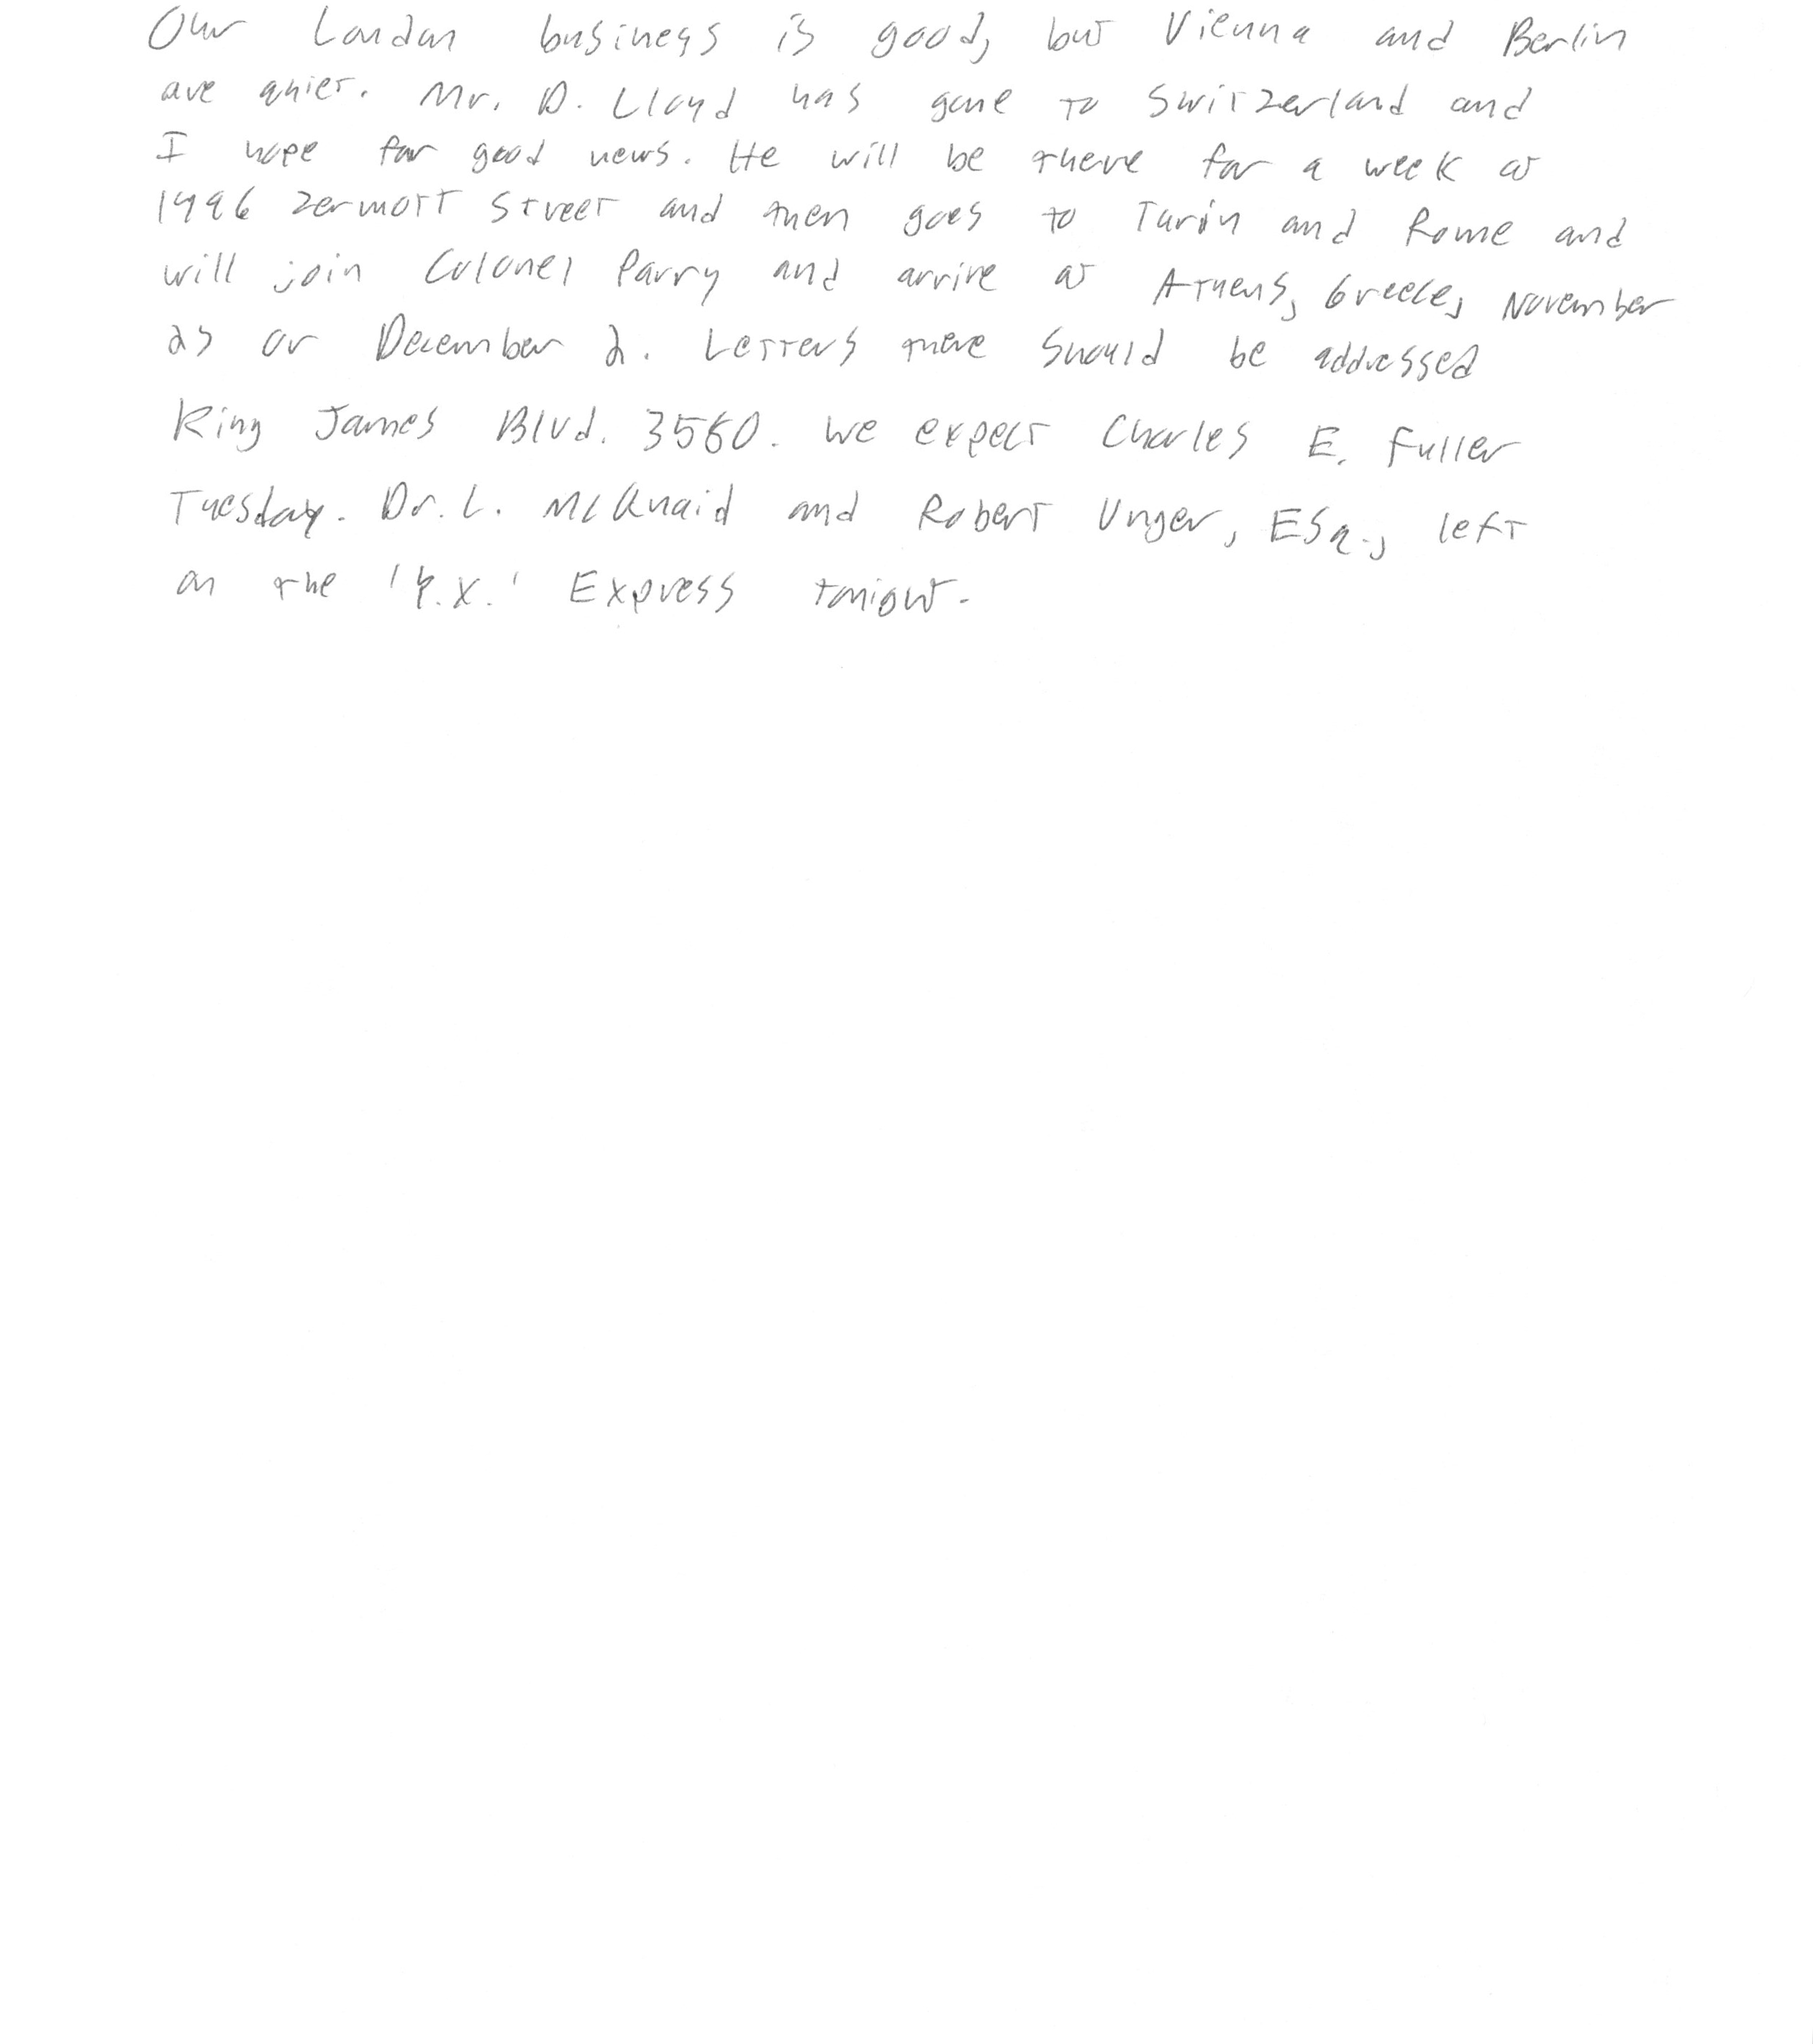 Our London business is good, but Vienna and Berlin
are quiet. Mr. D. Lloyd has gone to Switzerland and
I hope for good news. He will be there for a week at
1996 Zermott Street and then goes to Turin and Rome and
will join Colonel Parry and arrive at Athens, Greece, November
25 or December 2. Letters there should be addressed
King James Blvd. 3560. We expect Charles E. Fuller
Tuesday. Dr. L. McQuaid and Robert Unger, Esq., left
on the 'Y.X.' Express tonight.